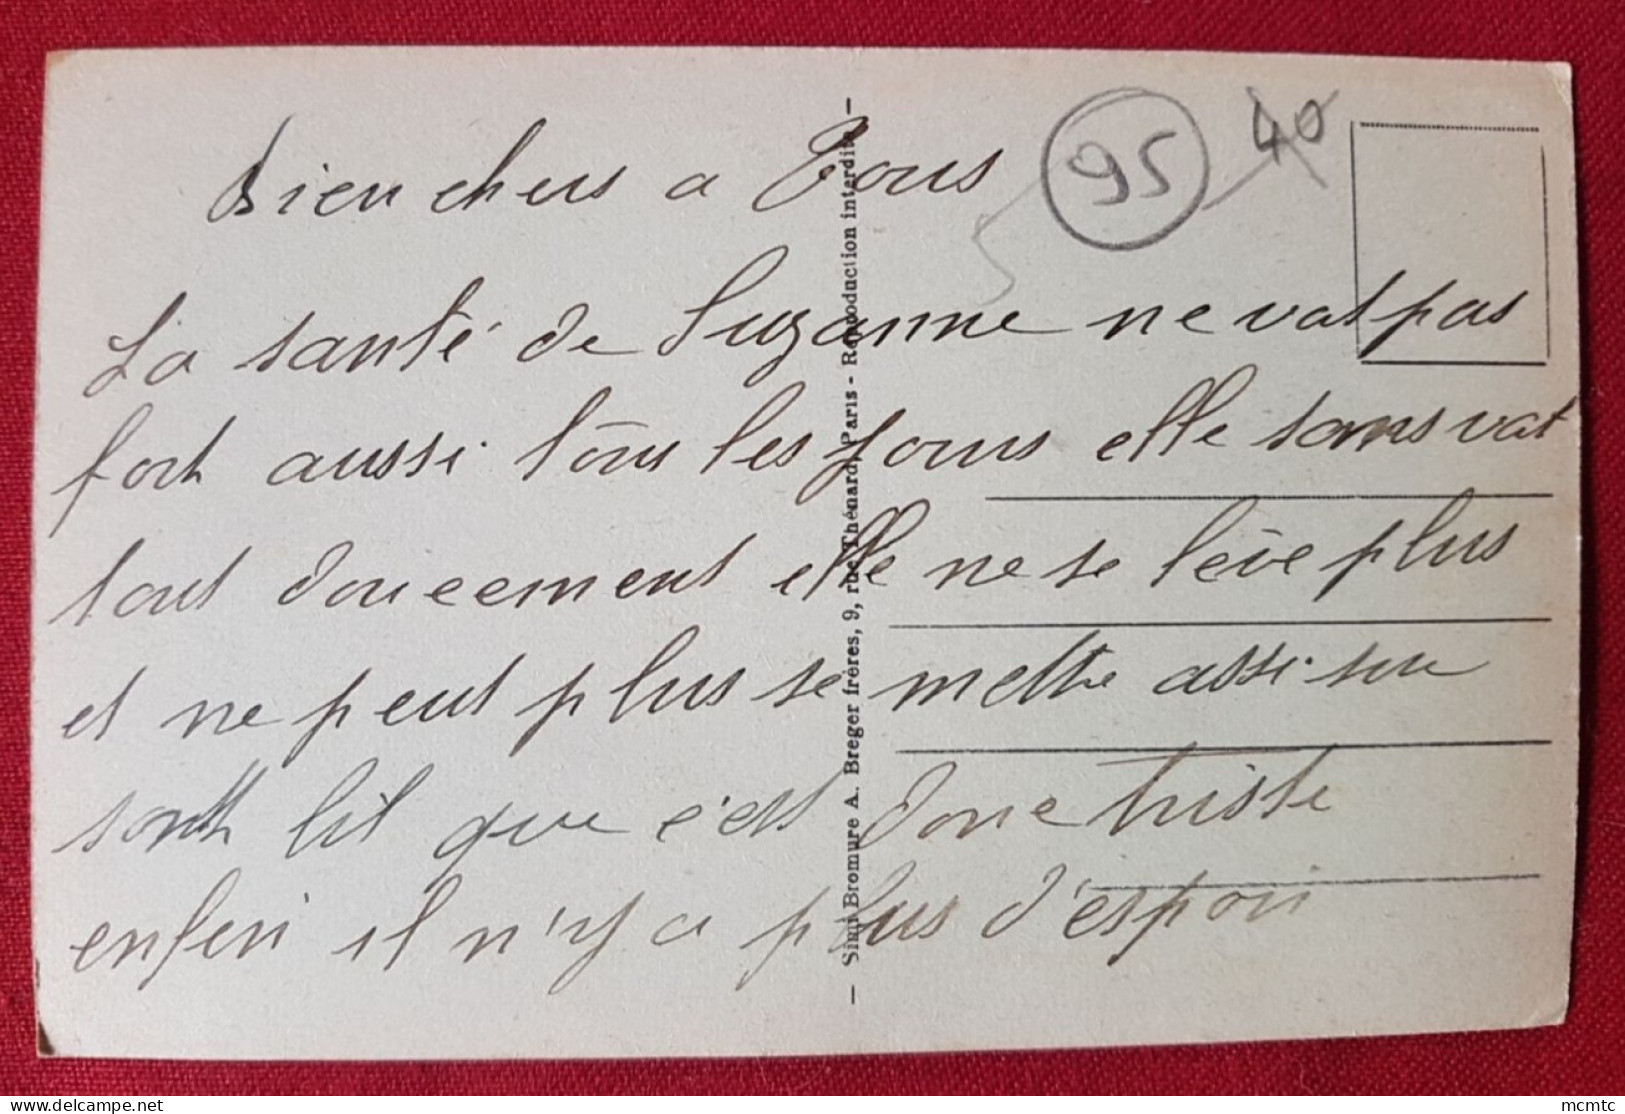 Bien chers a Tous
95
40
La santé de Suzanne ne vat pas
fort aussi tous les jours elle sans vat
tout doucement elle ne se lève plus
et ne peut plus se mettre assi sur
sont lit que c'est donc triste
enfin il n'y a plus d'espoir
- Simili Bromure A. Breger frères, 9, rue Thénard, Paris - Reproduction interdite -
mcmtc